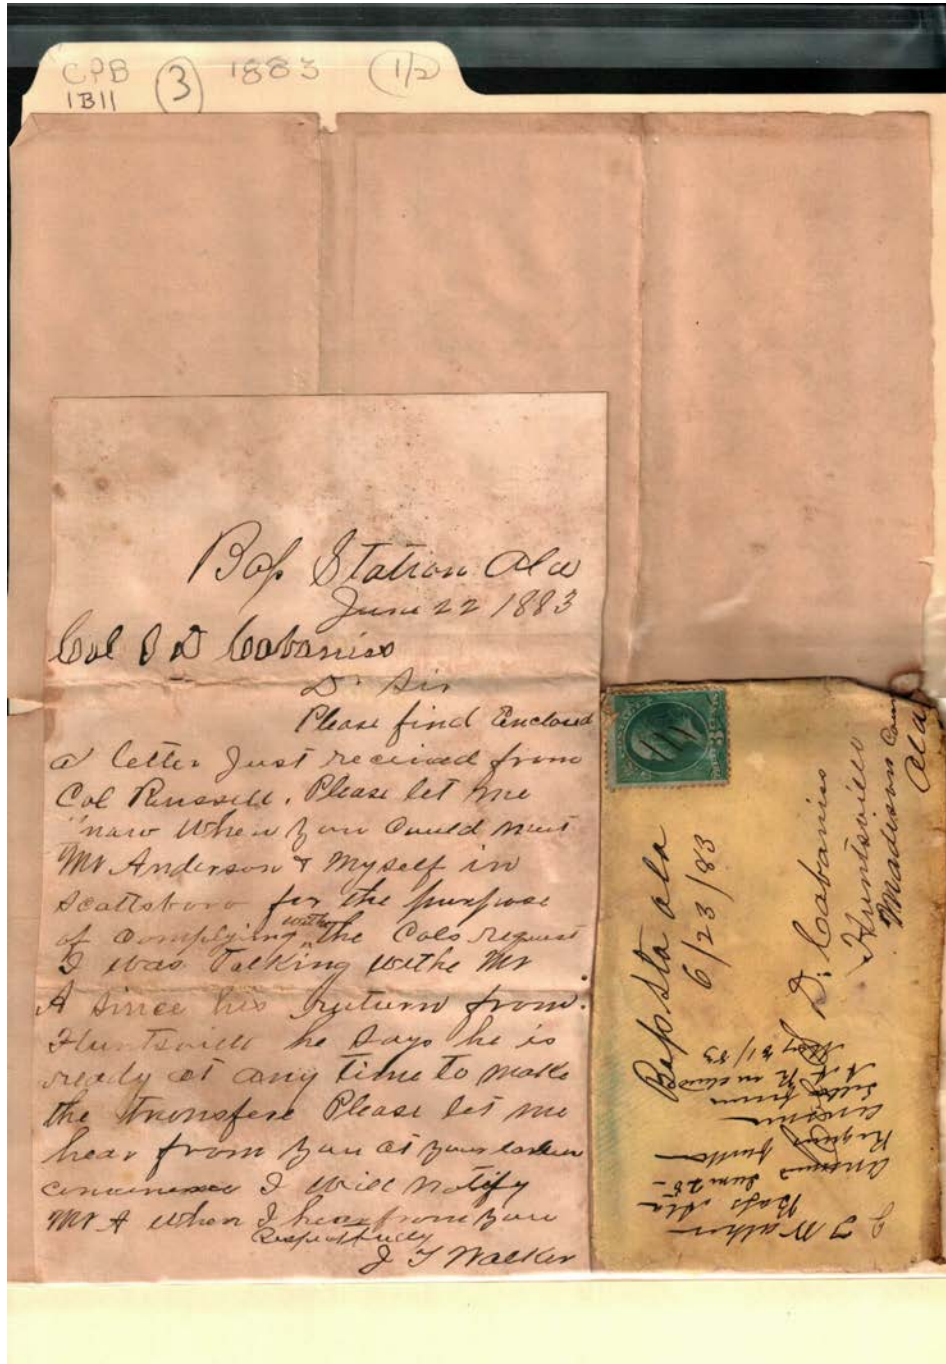 CPB 1B11 (3) 1883 (1/2)
Bass Station Ala
June 22 1883
Col S D Cabaniss
Dr Sir
Please find Enclosed
a letter Just recieved from
Col Russell. Please let me
"now When you Could meet
Mr Anderson & Myself in
Scottsboro for the purpose
of Complying with the Cols request
I was Talking withe Mr
A since his return from
Huntsville he Says he is
ready at any time to make
the Transfere Please let me
hear from you at your
I will notify
Mr A when I hear from you
Respectfully
J T Walker
Bass Sta ala
6/23/83
D. Cabaniss
Huntsville
Madison Coun
Ala
J T Walker
Bass Ala
June 25
May 31/83